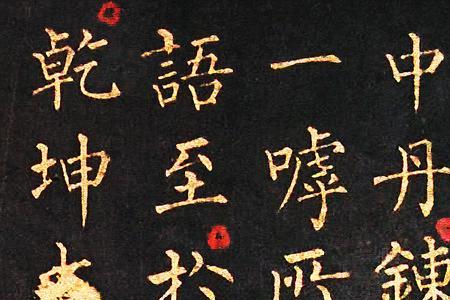 中丹鍊
一嘑所
語至扵
乾坤